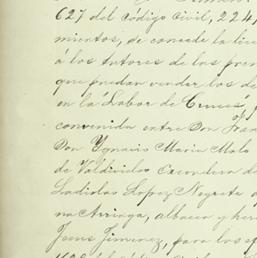 627 del código civil, 224,
mientos, se concede la lice
á los tutores de los pren
que puedan vender los de
en la Labor de Cruces, 
convenida entre Don Fran
Don Ygnacio Maria Malo
de Valdivielso Escandon de
Ladislao Lopez Negrete a
na Arriaga, albacea y her
Jesus Jimenez, para los ef